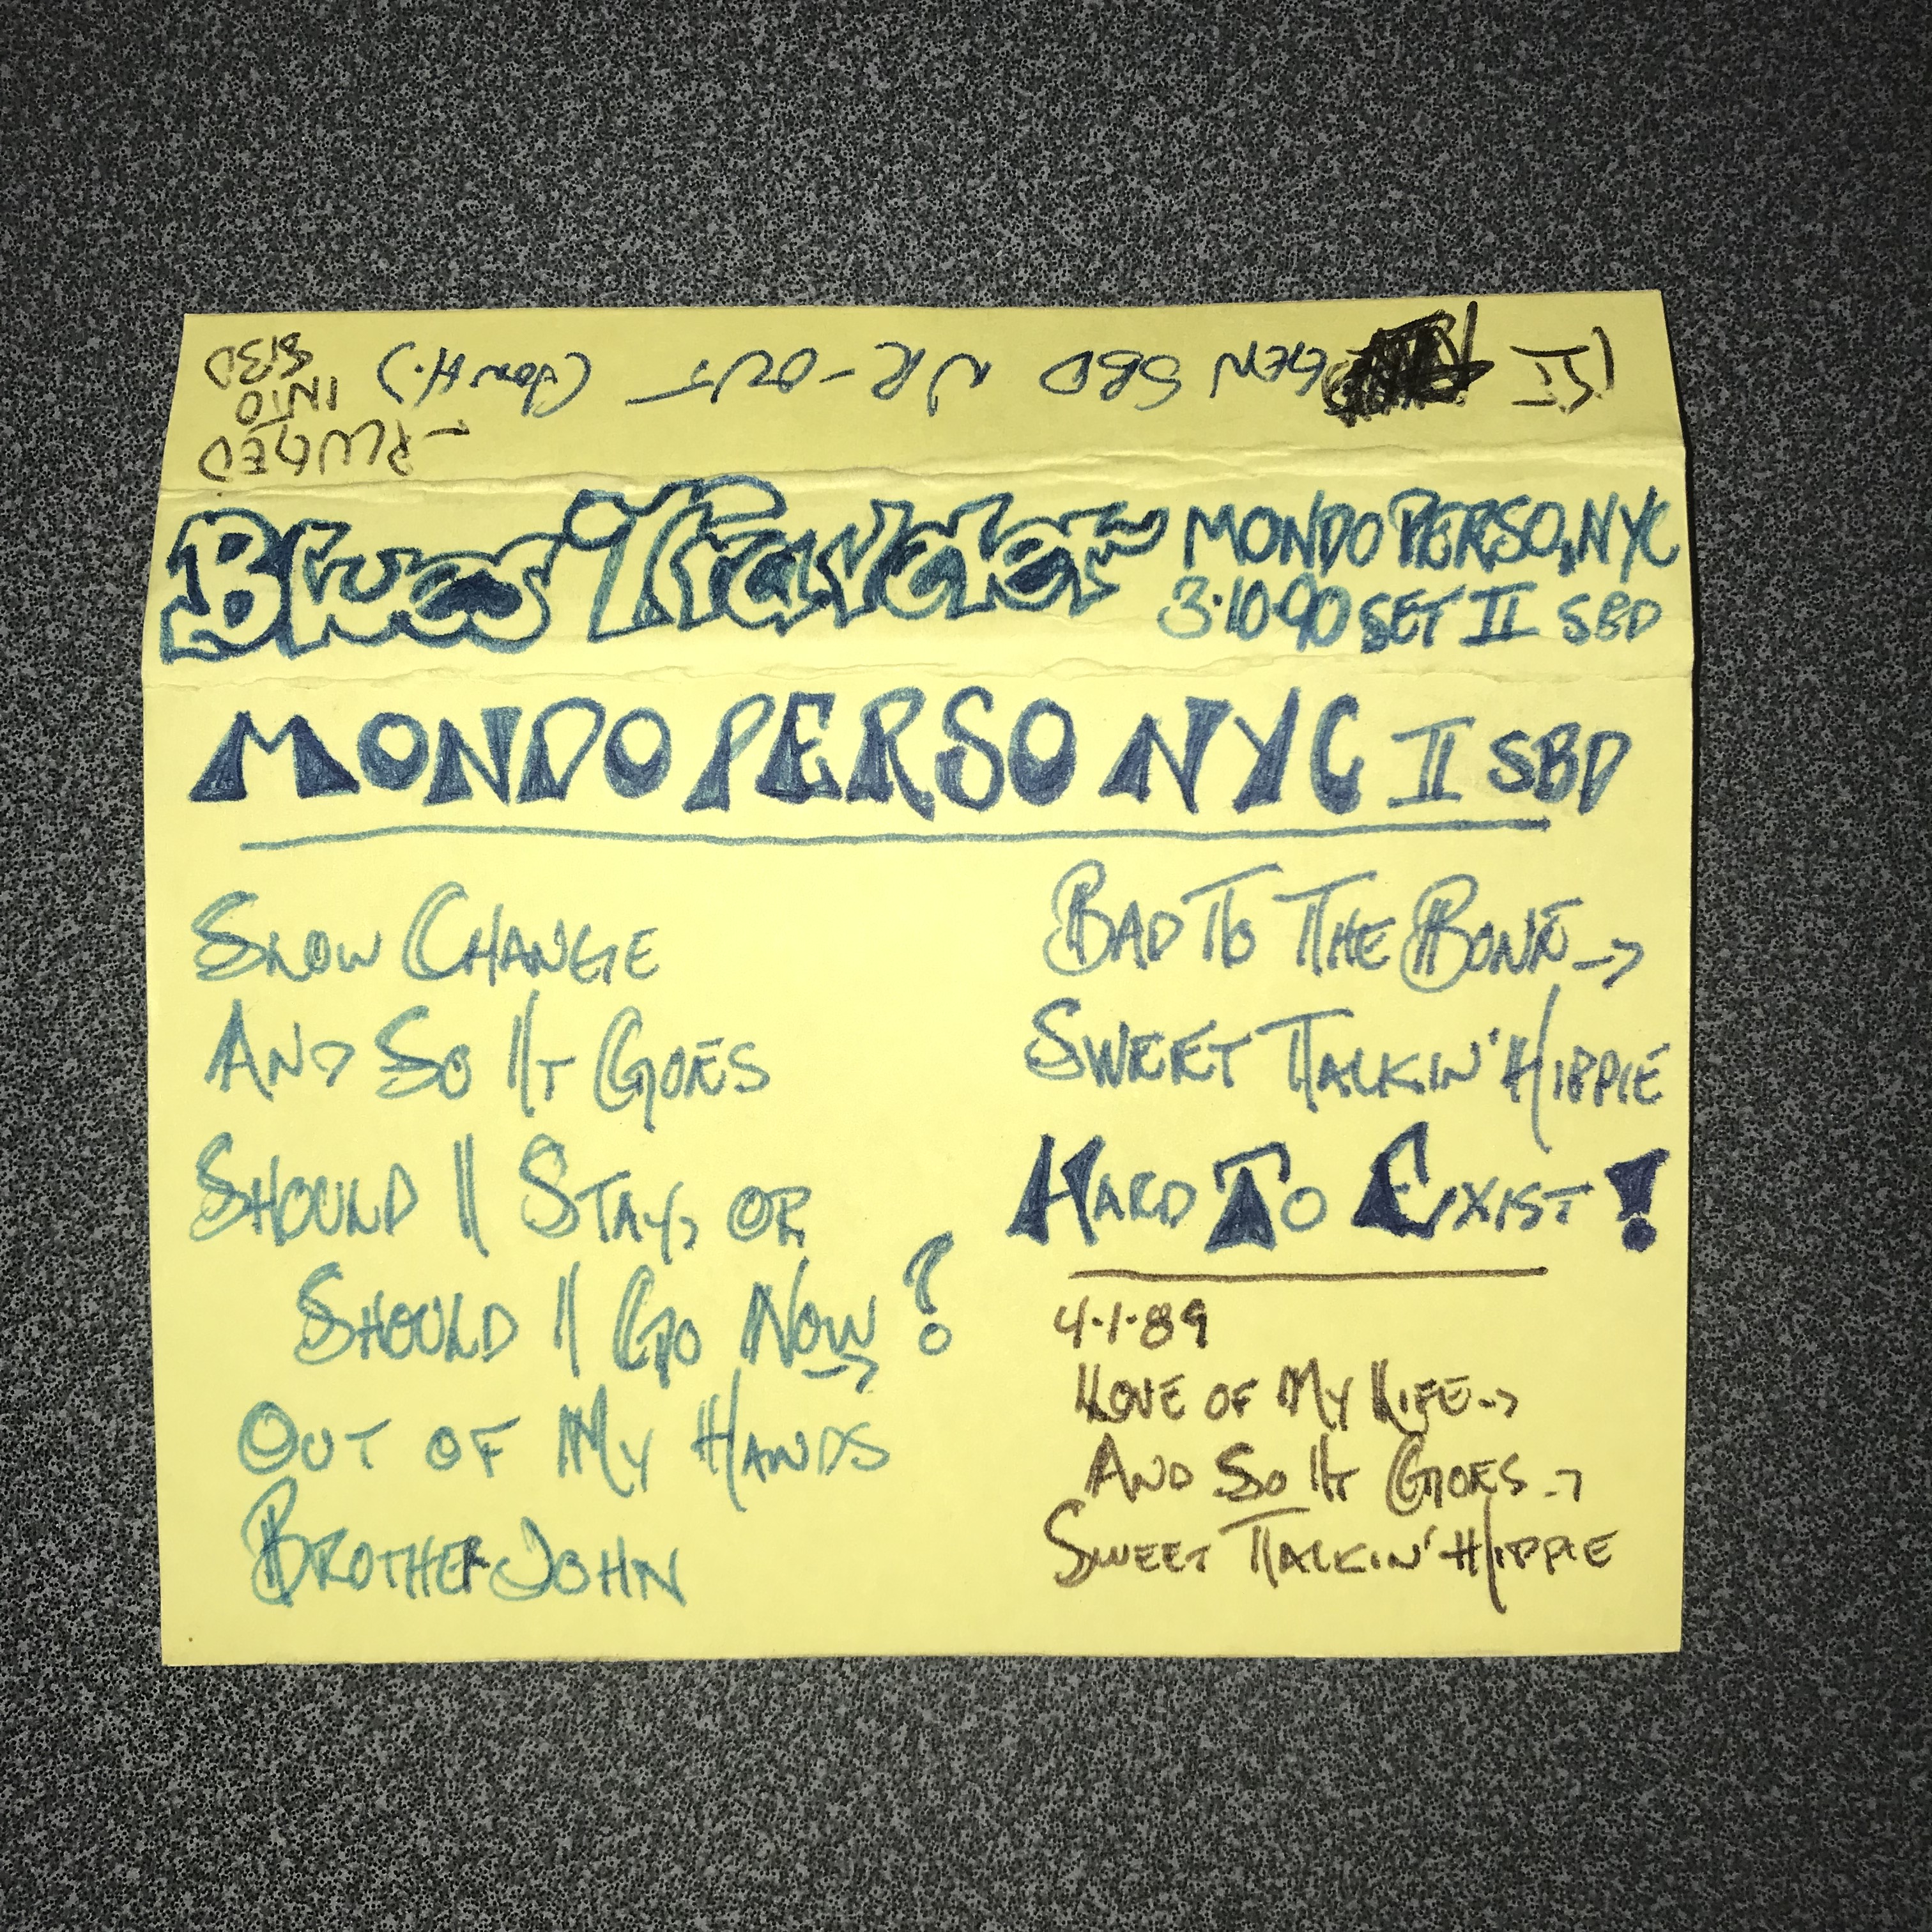 1ST GEN SBD NR-OUT (JON H.)
- PLUGED
INTO
SBD
Blues Traveler MONDO PERSO, NYC
3·10·90 SET II SBD
MONDO PERSO NYC II SBD
SLOW CHANGE
AND SO IT GOES
SHOULD I STAY, OR
SHOULD I GO NOW ?
->
OUT OF MY HANDS
BROTHER JOHN
BAD TO THE BONE ->
SWEET TALKIN' HIPPIE
HARD TO EXIST !
4·1·89
LOVE OF MY LIFE ->
AND SO IT GOES ->
SWEET TALKIN' HIPPIE